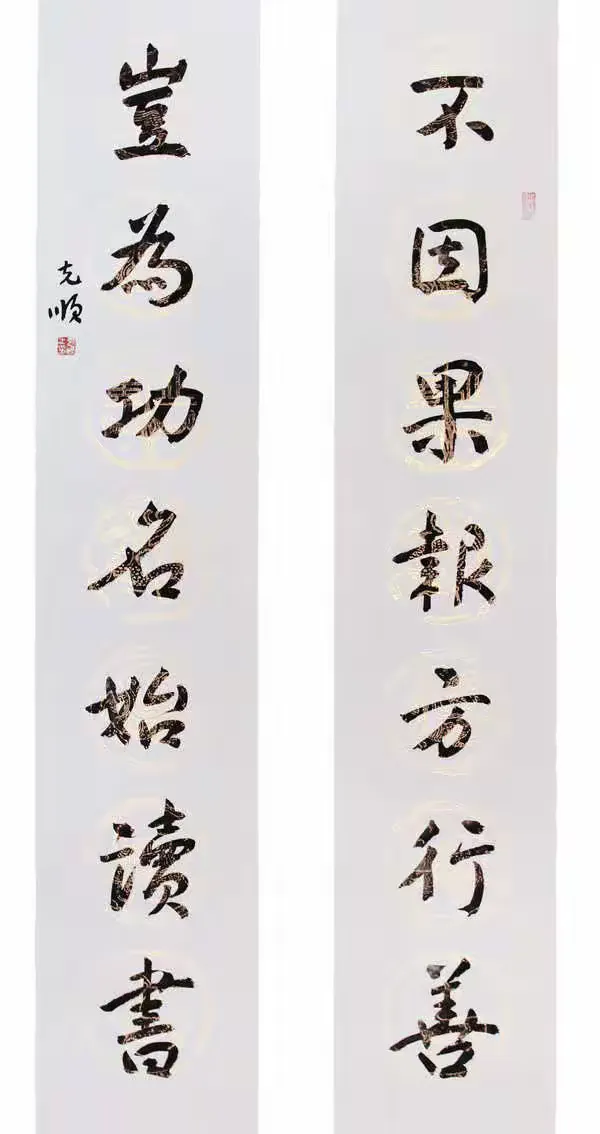 不因果報方行善
豈為功名始讀書
克順